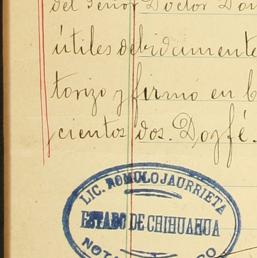 del Señor Doctor Don
útiles debidamente
torizo y firmo en
cientos dos. Doy fé.
LIC. ROMULO JAURRIETA
ESTADO DE CHIHUAHUA